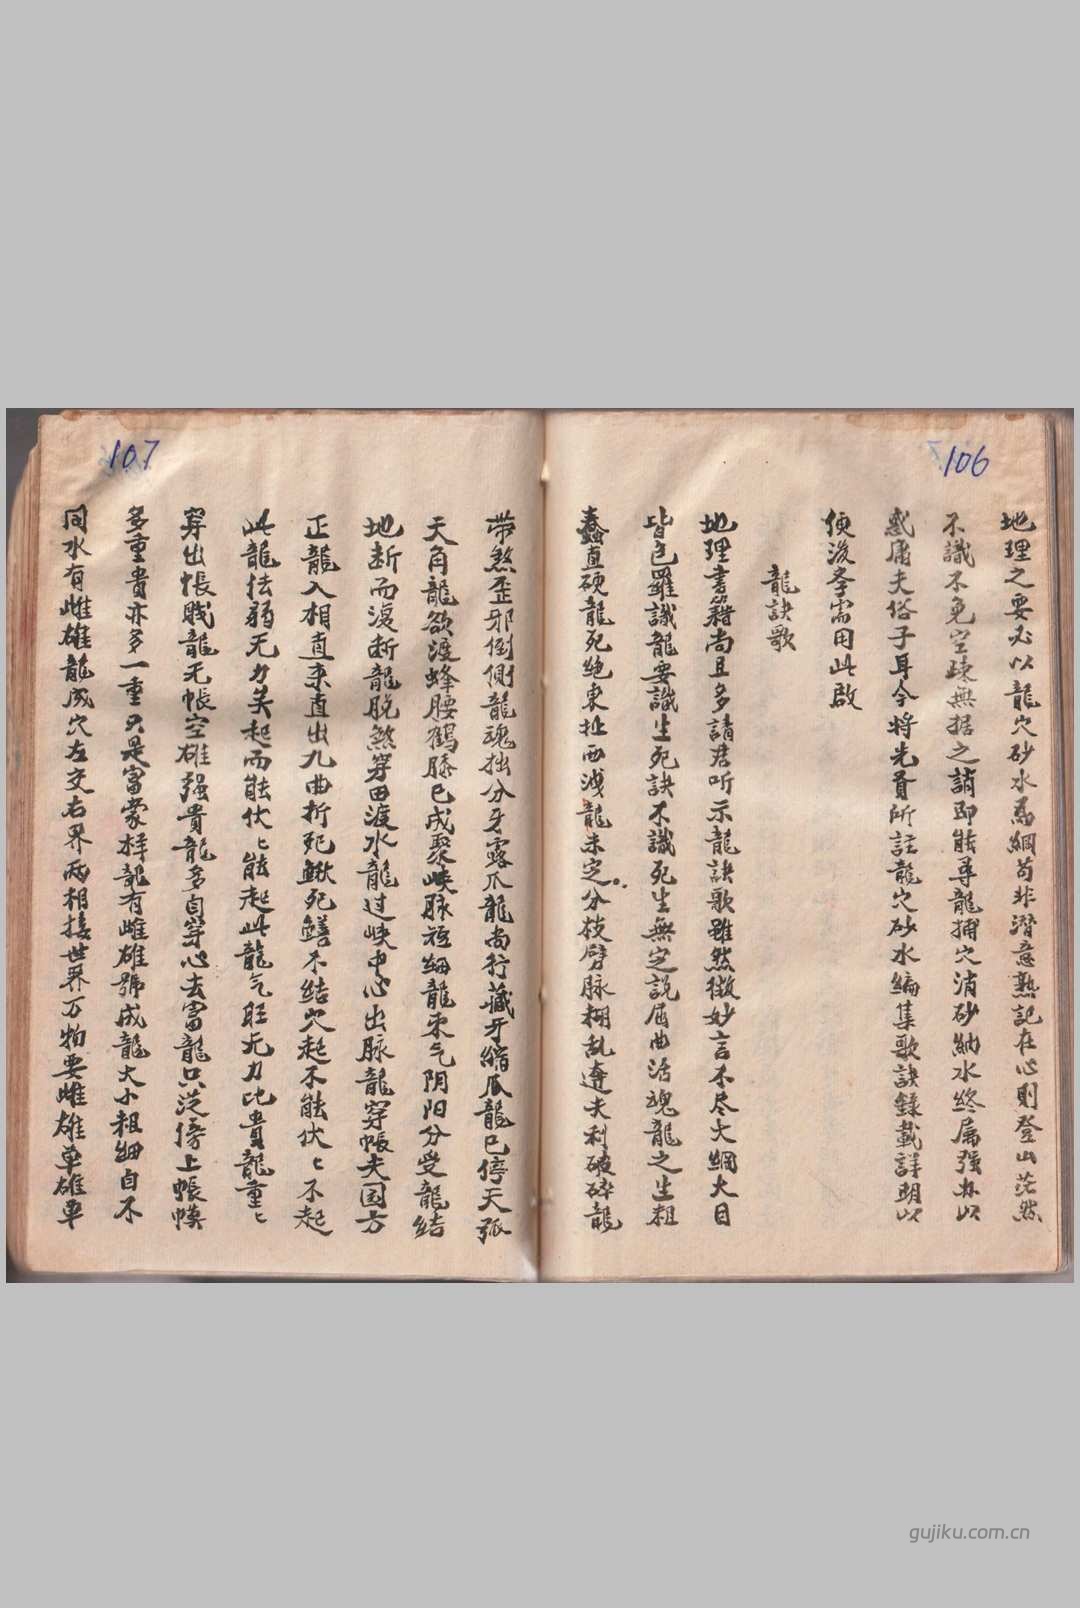 106
地理之要必以龍穴砂水爲綱苟非潛意熟記在心則登山茫然
不識不免空疎無据之誚即能尋龍捕穴消砂納水終属强㐂以
惑庸夫俗子耳今将先賢所註龍穴砂水編集歌訣錄載詳明以
便後季需用此啟
龍訣歌
地理書籍尚且多請君听示龍訣歌雖然微妙言不尽大綱大目
皆包羅識龍要識生死訣不識死生無定説屈曲活魂龍之生粗
蠢直硬龍死绝東扯西洩龍未定分枝劈脉糊乱遶夫利破碎龍
107
带煞歪邪倒側龍魂拙分牙露爪龍尚行藏牙縮爪龍已停天弧
天角龍欲渡蜂腰鶴膝已成聚峡脉短細龍束气阴阳分受龍结
地断而復断龍脱煞穿田渡水龍过峡中心出脉龍穿帳夫国方
正龍入相直来直出九曲折死鰍死鱔不结穴起不能伏々不起
此龍怯弱无力矣起而能伏々能起此龍气旺无力比貴龍重々
穿出帳賎龍无帳空雄强貴龍多自穿心去富龍只泛傍上帳幙
多重貴亦多一重只是富豪样龍有雌雄號成龍大小粗細自不
同水有雌雄龍成穴左交右界两相接世界万物要雌雄单雄单
gujiku.com.cn